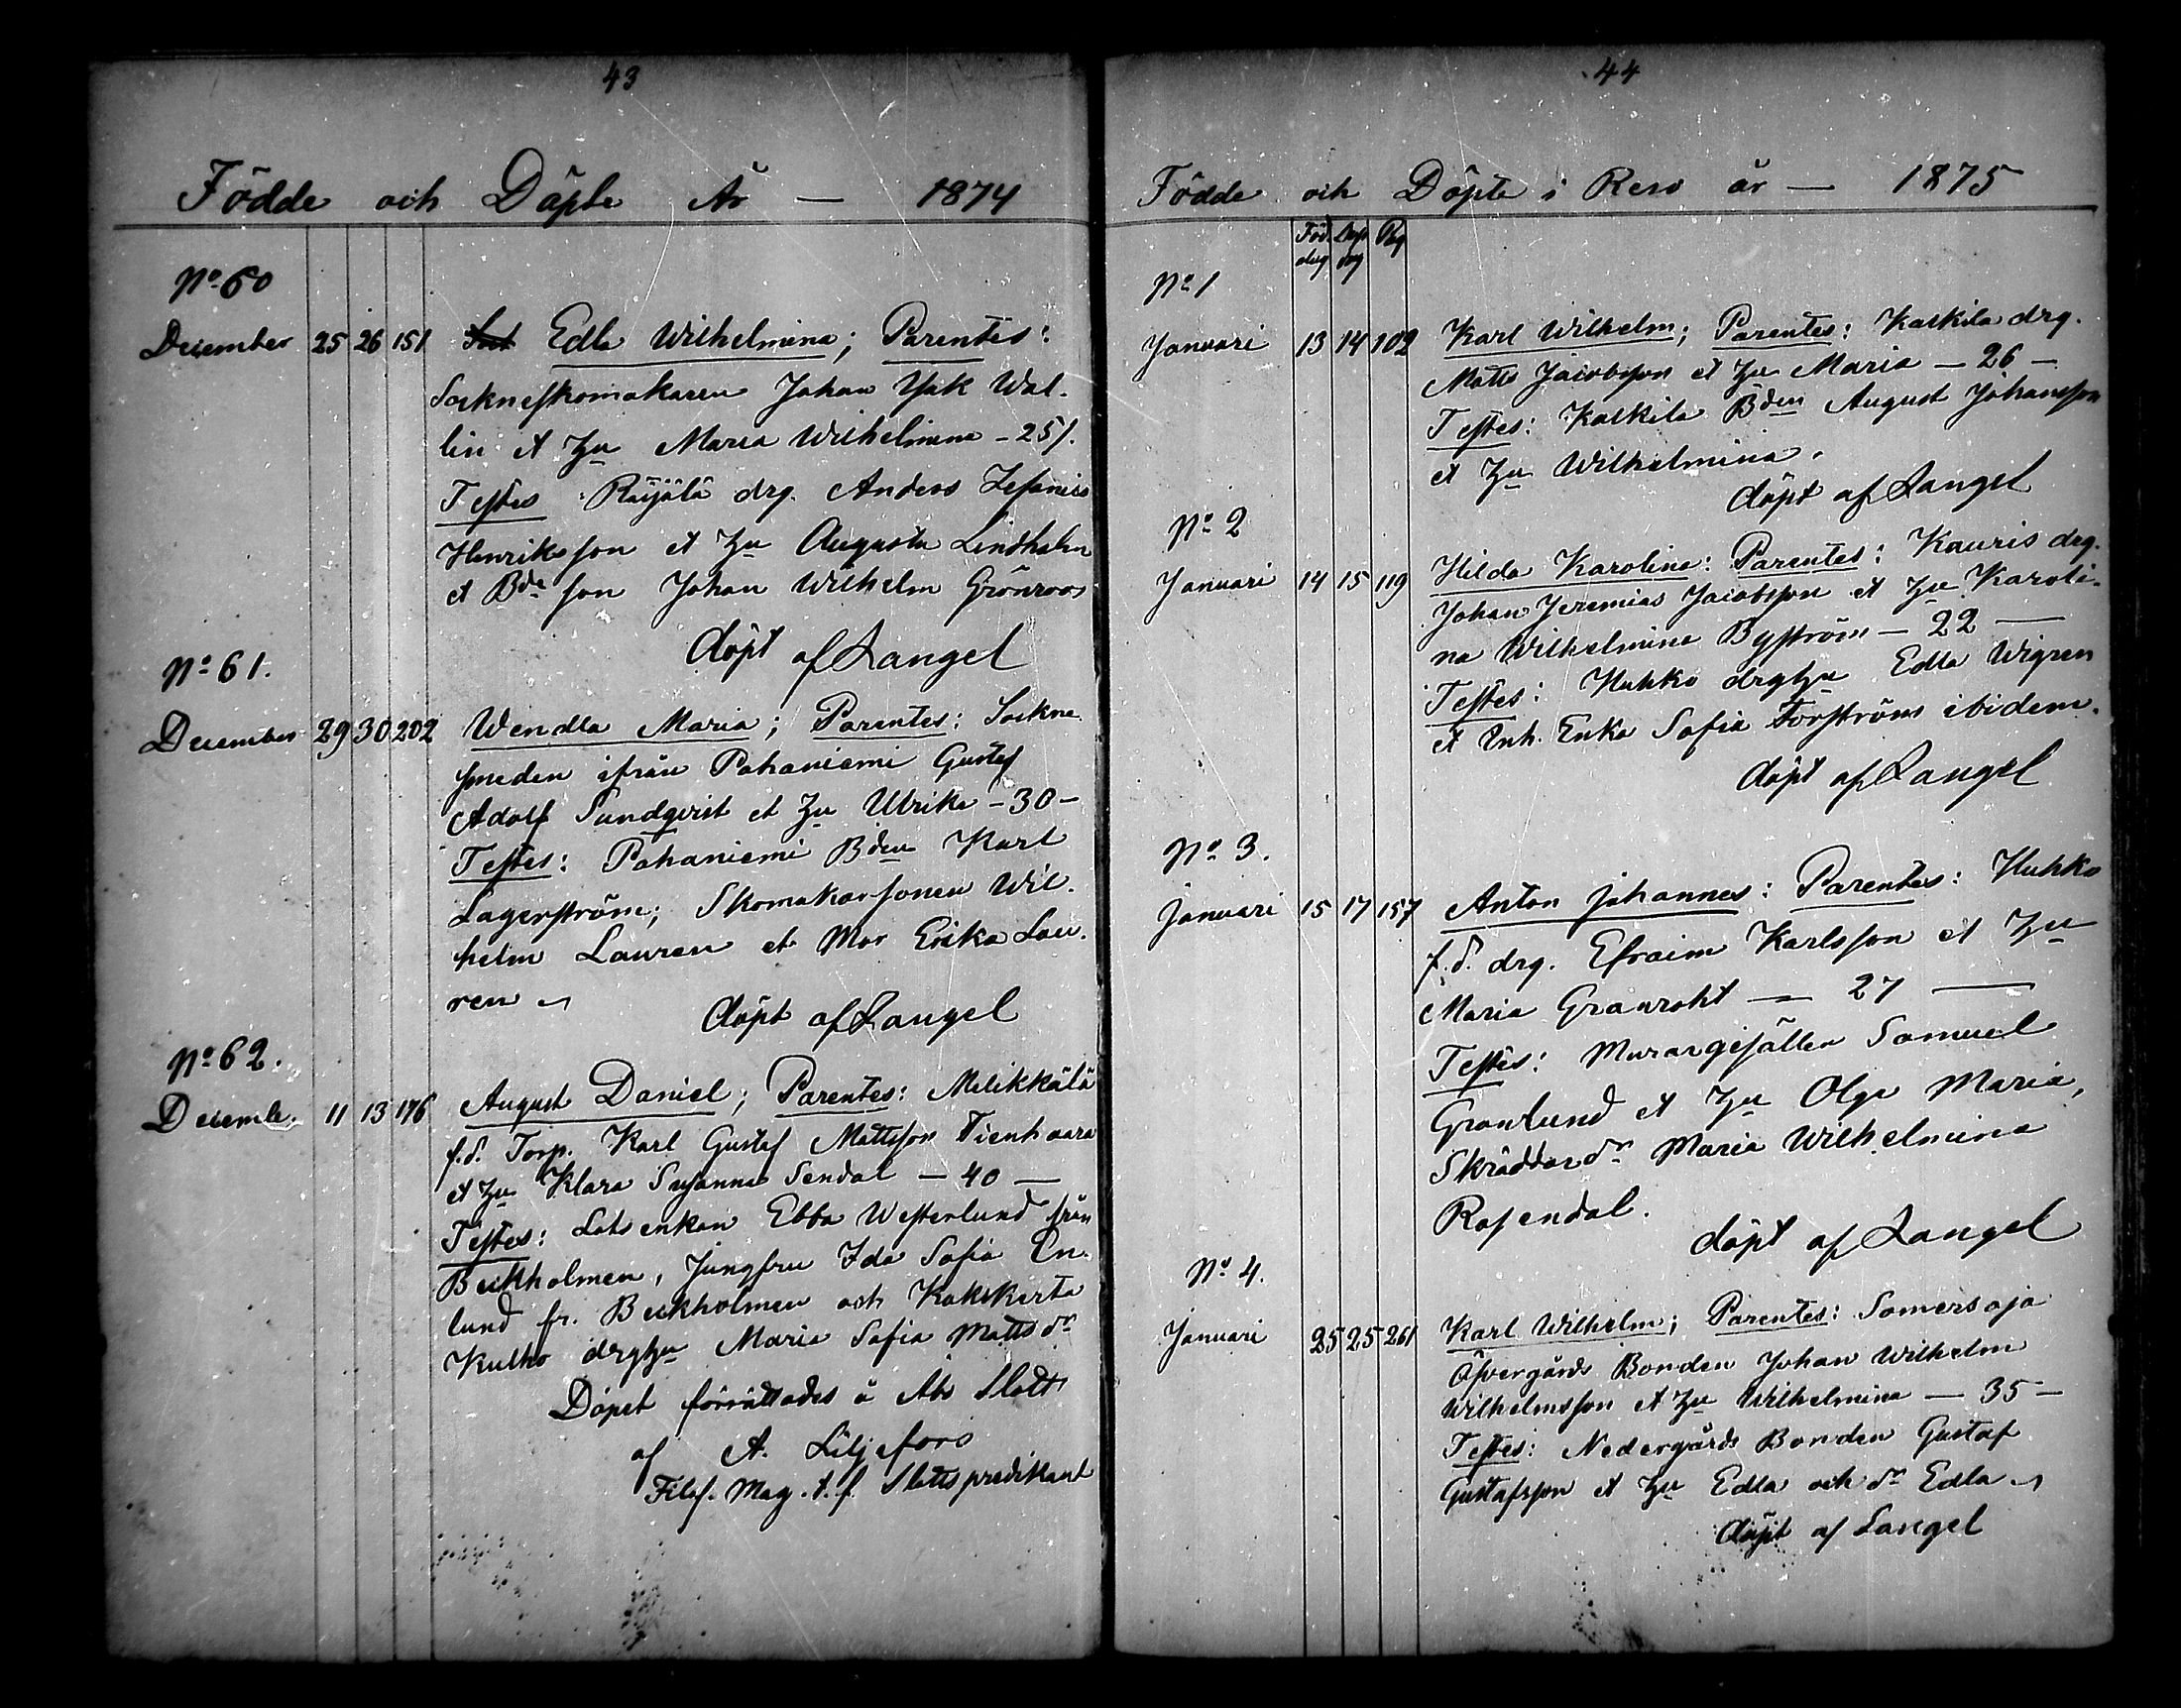 43
Födde och Döpte År — 1874
No 60
December 25 26 151 Edla Wilhelmina; Parentes:
Sockneskomakaren Johan Isak Wal-
lin et Hu Maria Wilhelmina - 25/.
Testes: Räyälä drg. Anders Zefanias
Henriksson et Hu Augusta Lindholm
et Bde son Johan Wilhelm Grönroos
döpt af Langel
No 61.
December 29 30 202 Wendla Maria; Parentes: Sockne
smeden ifrån Pahaniemi Gustaf
Adolf Sundqvist et Hu Ulrika - 30 -
Testes: Pahaniemi Bden Karl
Lagerström; Skomakarsonen Wil-
helm Lauren et Mor Erika Lau-
ren
döpt af Langel
No 62.
Decemb. 11 13 176 August Daniel; Parentes: Melikkälä
f.d. Torp. Karl Gustaf Mattsson Tienhaara
et Hu Klara Susanna Sendal — 40 —
Testes: Lots enkan Ebba Westerlund från
Beckholmen, Jungfru Ida Sofia En-
lund fr. Beckholmen och Kakskerta
Kulho drghu Maria Sofia Matts dr
Döpet förrättades å Åbo Slott
af A. Liljefors
Filos. Mag. t. f. Slottspredikant
44
Födde och Döpte i Reso år — 1875
Föd. dag Döp dag Pag
No 1
Januari 13 14 102 Karl Wilhelm; Parentes: Kaskila drg.
Matts Jacobsson et Hu Maria — 26 —
Testes: Kaskila Bden August Johansson
et Hu Wilhelmina.
döpt af Langel
No 2
Januari 14 15 119 Hilda Karolina: Parentes: Kauris drg.
Johan Jeremias Jacobsson et Hu Karoli-
na Wilhelmina Byström — 22 —
Testes: Huhko drghu Edla Wigren
et Inh. Enka Sofia Forström ibidem.
döpt af Langel
No 3.
Januari 15 17 157 Anton Johannes: Parentes: Huhko
f.d. drg. Efraim Karlsson et Hu
Maria Granroht — 27 —
Testes: Murargesällen Samuel
Granlund et Hu Olga Maria,
Skräddar dr Maria Wilhelmina
Rosendal.
döpt af Langel
No 4.
Januari 25 25 261 Karl Wilhelm; Parentes: Somersoja
Öfvergårds Bonden Johan Wilhelm
Wilhelmsson et Hu Wilhelmina — 35 —
Testes: Nedergårds Bonden Gustaf
Gustafsson et Hu Edla och dr Edla
döpt af Langel